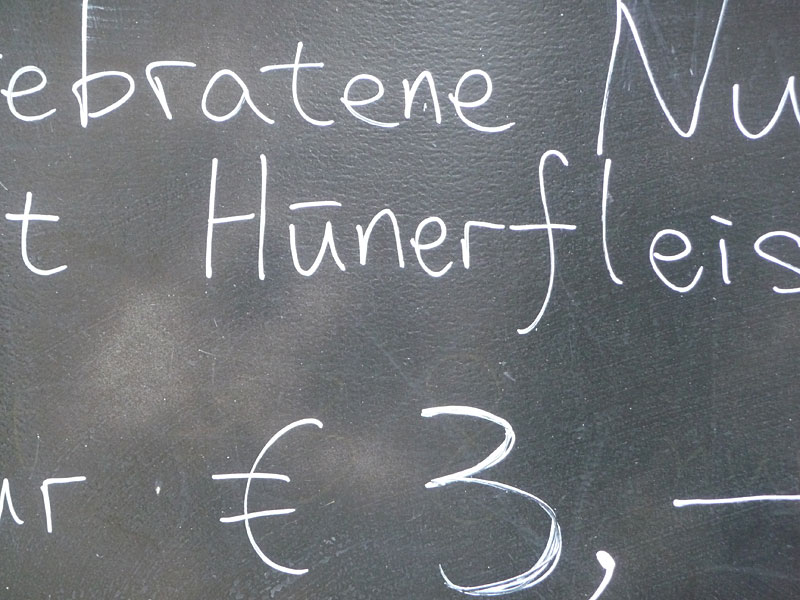 ebratene Nu
t Hūnerfleis
ur . € 3,—